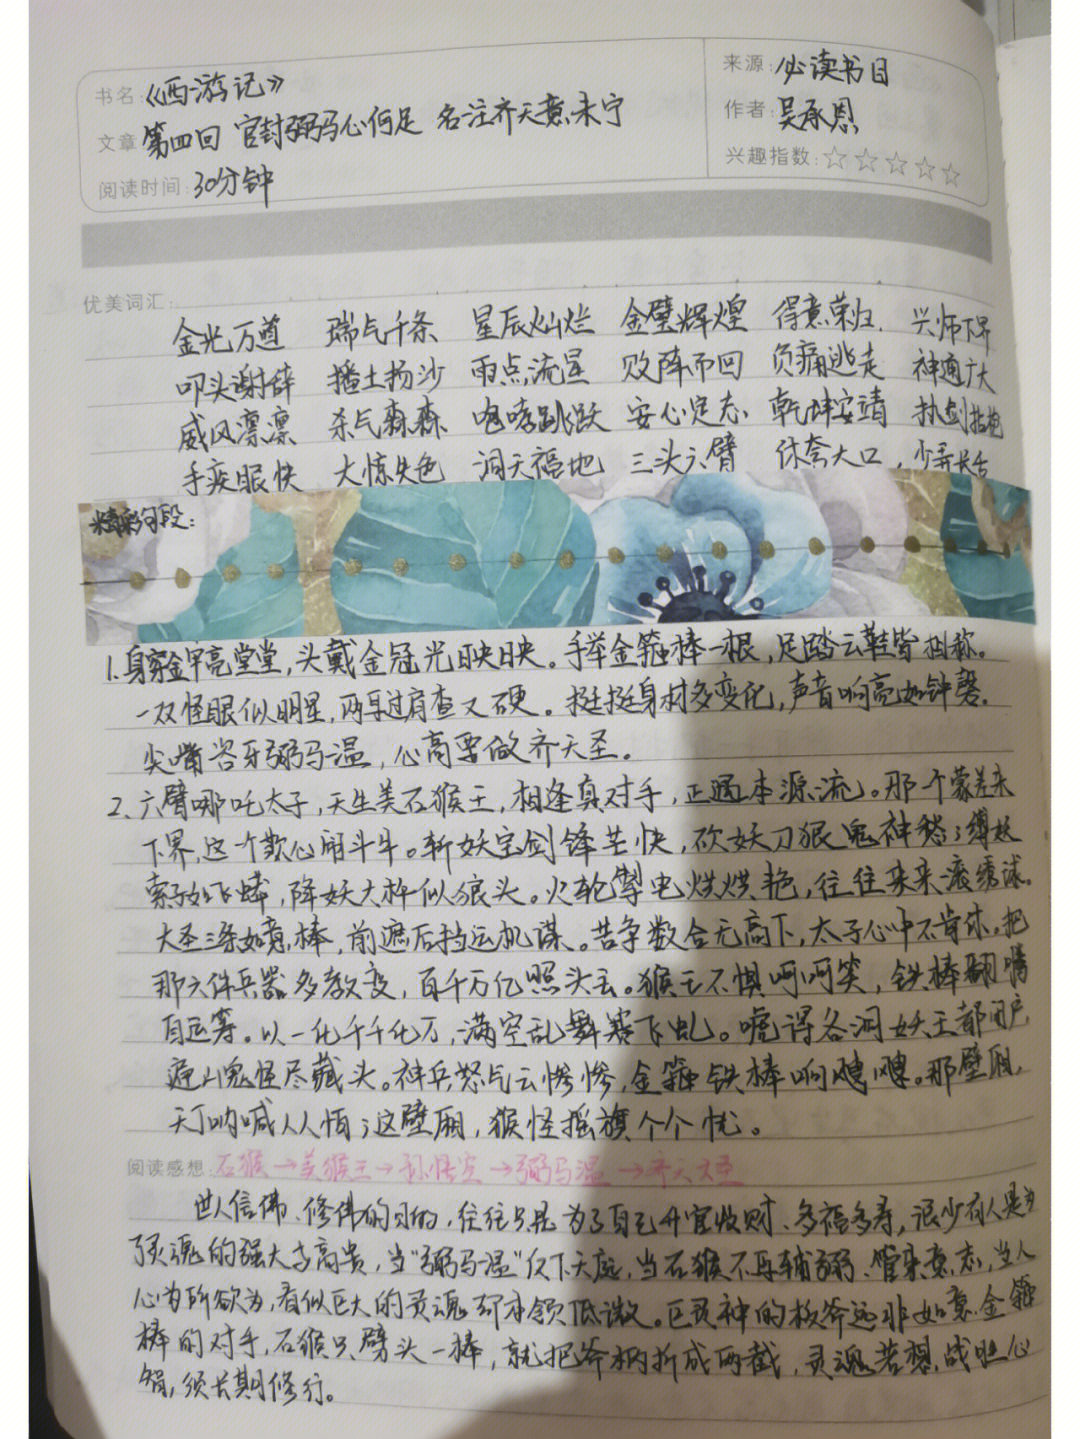 书名:《西游记》
来源:必读书目
文章 第四回 官封弼马心何足 名注齐天意未宁
作者:吴承恩
阅读时间:30分钟
兴趣指数:☆☆☆☆☆
优美词汇:
金光万道 瑞气千条 星辰灿烂 金壁辉煌 得意荣归 兴师下界
叩头谢辞 播土扬沙 雨点流星 败阵而回 负痛逃走 神通广大
威风凛凛 杀气森森 咆哮跳跃 安心定志 乾坤安靖 执剑抡枪
手疾眼快 大惊失色 洞天福地 三头六臂 休夸大口,少弄长舌
精彩句段:
1.身穿金甲亮堂堂,头戴金冠光映映。手举金箍棒一根,足踏云鞋皆相称。
一双怪眼似明星,两耳过肩查又硬。挺挺身材多变化,声音响亮如钟磬。
尖嘴咨牙弼马温,心高要做齐天圣。
2、六臂哪吒太子,天生美石猴王,相逢真对手,正遇本源流。那个蒙差来
下界,这个欺心闹斗牛。斩妖宝剑锋芒快,砍妖刀狠鬼神愁;缚妖
索子如飞蟒,降妖大杵似狼头。火轮掣电烘烘艳,往往来来滚绣球。
大圣三条如意棒,前遮后挡运机谋。苦争数合无高下,太子心中不肯休。把
那六件兵器多教变,百千万亿照头丢。猴王不惧呵呵笑,铁棒翻腾
自运筹。以一化千千化万,满空乱舞赛飞虬。唬得各洞妖王都闭户,
遍山鬼怪尽藏头。神兵怒气云惨惨,金箍铁棒响飕飕。那壁厢,
天丁呐喊人人怕;这壁厢,猴怪摇旗个个忧。
阅读感想:石猴→美猴王→孙悟空→弼马温→齐天大圣
世人信佛、修佛的目的,往往只是为了自己升官收财、多福多寿,很少有人是为
了灵魂的强大与高贵,当“弼马温”反下天庭,当石猴不再辅弼、管束意志,当人
心为所欲为,看似巨大的灵魂却本领低微。巨灵神的板斧远非如意金箍
棒的对手,石猴只劈头一棒,就把斧柄折成两截,灵魂若想战胜心
猿,须长期修行。